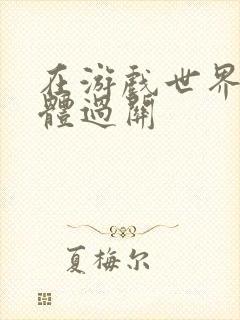 在游戏世界
體過關
夏梅尔